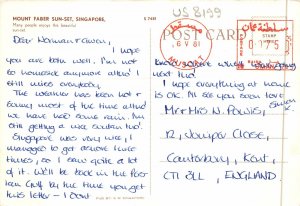 MOUNT FABER SUN-SET, SINGAPORE.
Many people enjoys the beautiful sunset.
S 7458
US 8199
POST CARD
مسقط
6 V 81
MUSCAT
سلطنة عمان
STAMP
0075
Dear Norman & Gwen,
I hope
you are both well. I'm not
so homesick anymore altho' I
still miss everybody.
The weather has been hot &
sunny most of the time altho'
we have had some rain. I'm
still getting a nice suntan tho'.
Singapore was very nice, I
managed to get ashore three
times, so I saw quite a lot
of it. We'll be back in the Per-
sian Gulf by the time you get
this letter - I don't
know where we're going
next tho'.
I hope everything at home
is O.K. All see you soon
Love
Simon
Mr & Mrs N. Powis,
12, Juniper Close,
Canterbury, Kent,
CT1 3LL, ENGLAND